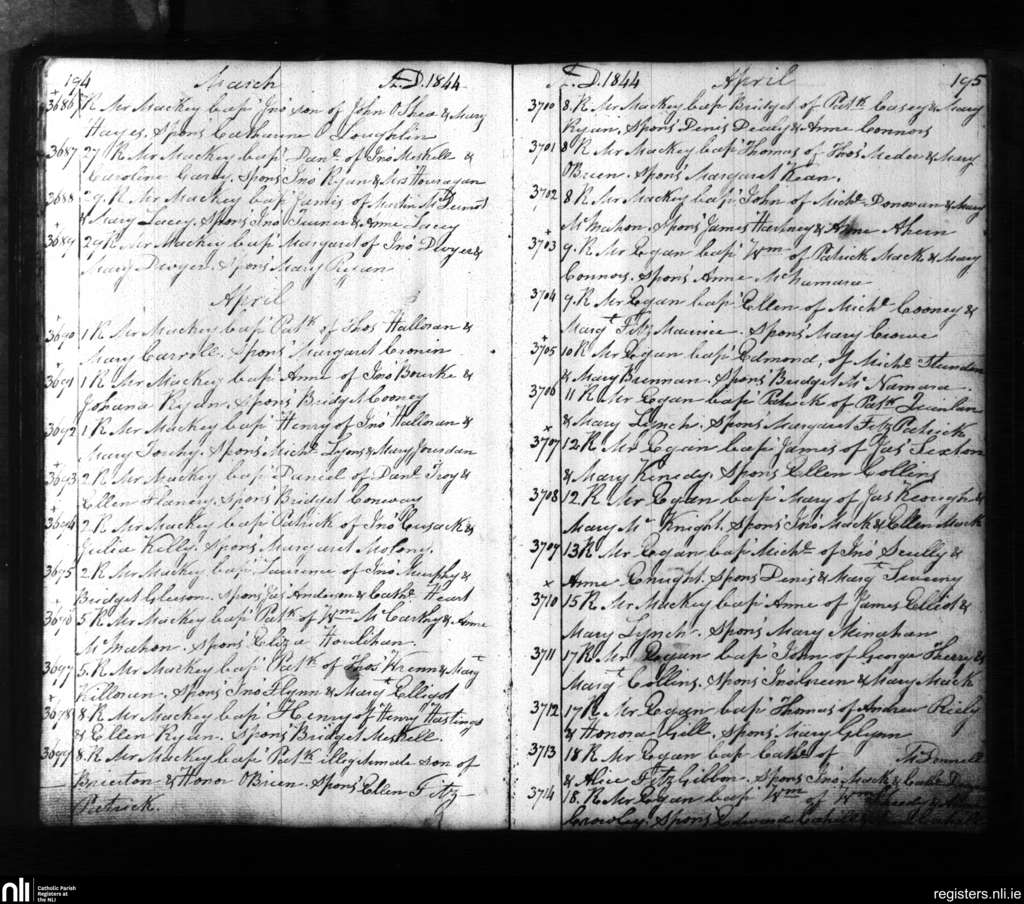 194 March A.D. 1844
3686 R Mr Mackey bapd Jno son of John O Shea & Mary
Hayes. Spons Catharine O Loughlin
3687 27 R Mr Mackey bapd Danl of Jno Meskell &
Caroline Carey. Spons Jno Ryan & Mrs Houragan
3688 29 R Mr Mackey bapd James of Martin McDermot
& Mary Lacey. Spons Jno Turner & Anne Lacey
3689 29 R Mr Mackey bapd Margaret of Jno Dwyer &
Mary Dwyer. Spons Mary Ryan
April
3690 1 R Mr Mackey bapd Patk of Thos Halloran &
Mary Carroll. Spons Margaret Cronin
3691 1 R Mr Mackey bapd Anne of Jno Bourke &
Johana Ryan. Spons Bridgt Cooney
3692 1 R Mr Mackey bapd Henry of Jno Halloran &
Mary Torphy. Spons Michl Lyons & Mary Jourdan
3693 2 R Mr Mackey bapd Daniel of Danl Troy &
Ellen Flanery. Spons Bridget Conway
3694 2 R Mr Mackey bapd Patrick of Jno Cusack &
Julia Kelly. Spons Margaret Molony.
3695 2 R Mr Mackey bapd Laurence of Jno Murphy &
Bridget Gleeson. Spons Jas Anderson & Cathe Heart
3696 5 R Mr Mackey bapd Patk of Wm McCarthy & Anne
McMahon. Spons Eliza Houlihan
3697 5 R Mr Mackey bapd Patk of Thos Wrenn & Margt
Killoran. Spons Jno Flynn & Margt Elligot
3698 8 R Mr Mackey bapd Henry of Henry Hastings
& Ellen Ryan. Spons Bridget Meskell.
3699 8. R Mr Mackey bapd Patk illegitimate son of
Brereton & Honor OBrien. Spons Ellen Fitz
Patrick.
A.D. 1844 April 195
3710 8. R Mr Mackey bapd Bridget of Patk Casey & Mary
Ryan. Spons Denis Dealy & Anne Connors
3701 8 R Mr Mackey bapd Thomas of Thos Meder & Mary
OBrien. Spons Margaret Kean.
3702 8 R Mr Mackey bapd John of Michl Donovan & Mary
McMahon. Spons James Hartney & Anne Ahern
3703 9. R Mr Egan bapd Wm of Patrick Mack & Mary
Connors. Spons Anne McNamara
3704 9. R Mr Egan bapd Ellen of Michl Cooney &
Margt Fitz Maurice. Spons Mary Crowe
3705 10 R Mr Egan bapd Edmond of Michl
& Mary Brennan. Spons Bridget McNamara
3706 11 R Mr Egan bapd Patrick of Patk Quinlan
& Mary Lynch. Spons Margaret Fitz Patrick
3707 12 R Mr Egan bapd James of Jas Sexton
& Mary Kenedy. Spons Ellen Collins
3708 12. R Mr Egan bapd Mary of Jas Keough &
Mary McKnight. Spons Jno Mack & Ellen Mack
3709 13 R Mr Egan bapd Michl of Jno Scully &
Anne Enright. Spons Denis & Margt Sweeny
3710 15 R Mr Mackey bapd Anne of James Elliot &
Mary Lynch. Spons Mary Menahan
3711 17 R Mr Egan bapd John of George Sherry &
Margt Collins. Spons Jno Green & Mary Mack
3712 17 R Mr Egan bapd Thomas of Andrew Riely
& Honora Gill. Spons Mary Glynn
3713 18 R Mr Egan bapd Cathe of McDonnell
& Alice Fitz Gibbon. Spons Jno Mack & Cathe
3714 18. R Mr Egan bapd Wm of Wm &
Crowley. Spons Edward
nli
Catholic Parish
Registers at
the NLI
registers.nli.ie